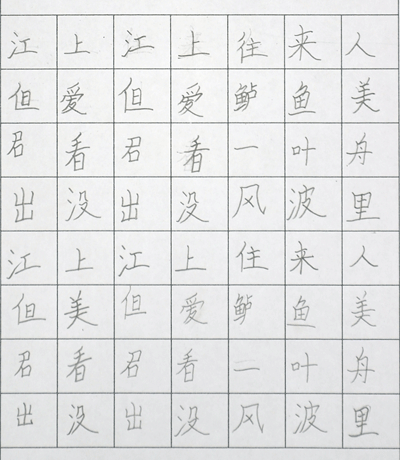 江上江上往来人
但爱但爱鲈鱼美
君看君看一叶舟
出没出没风波里
江上江上住来人
但美但爱鲈鱼美
君看君看一叶舟
出没出没风波里